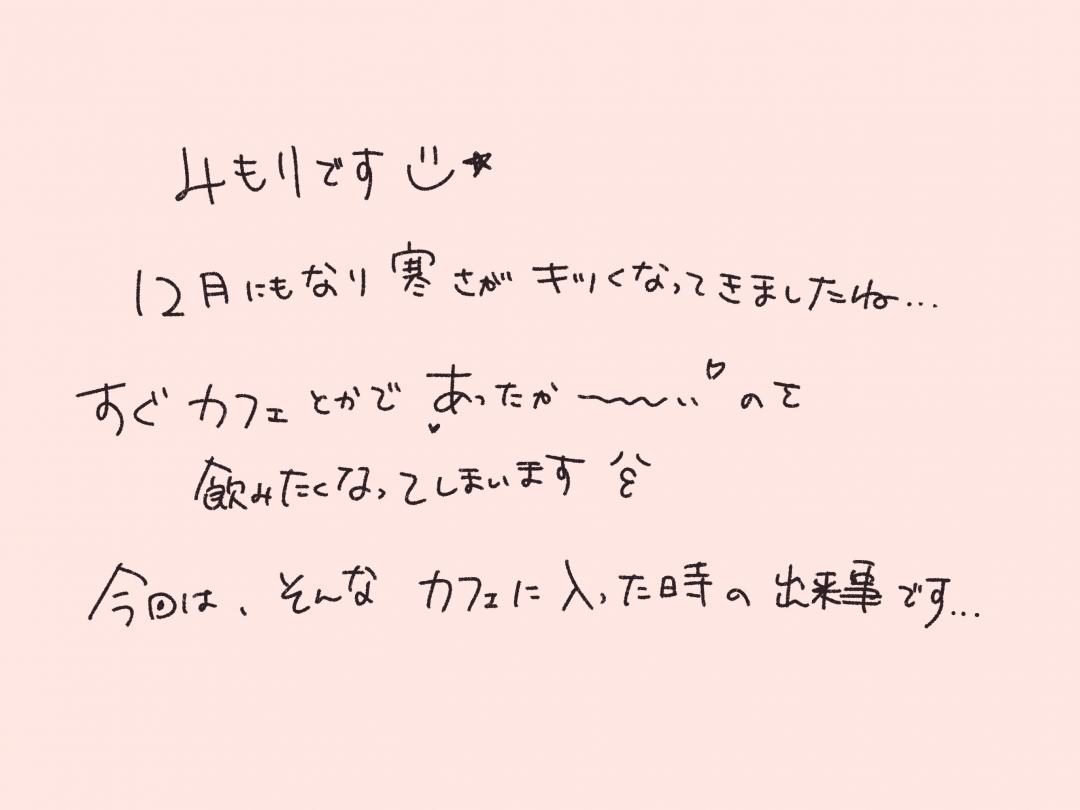 みもりです ☺★
12月にもなり寒さがキツくなってきましたね...
すぐカフェとかであったか〜〜い♡のを
飲みたくなってしまいます
今回は、そんなカフェに入った時の出来事です...